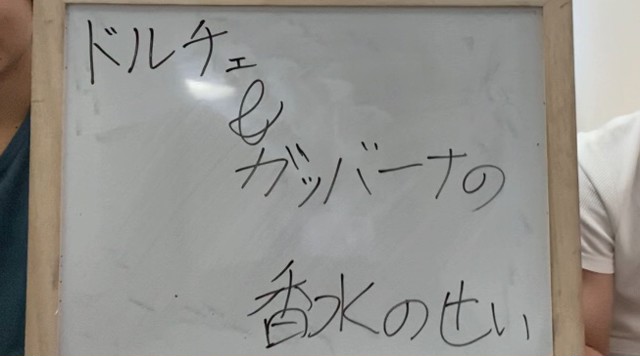 ドルチェ
&
ガッバーナの
香水のせい